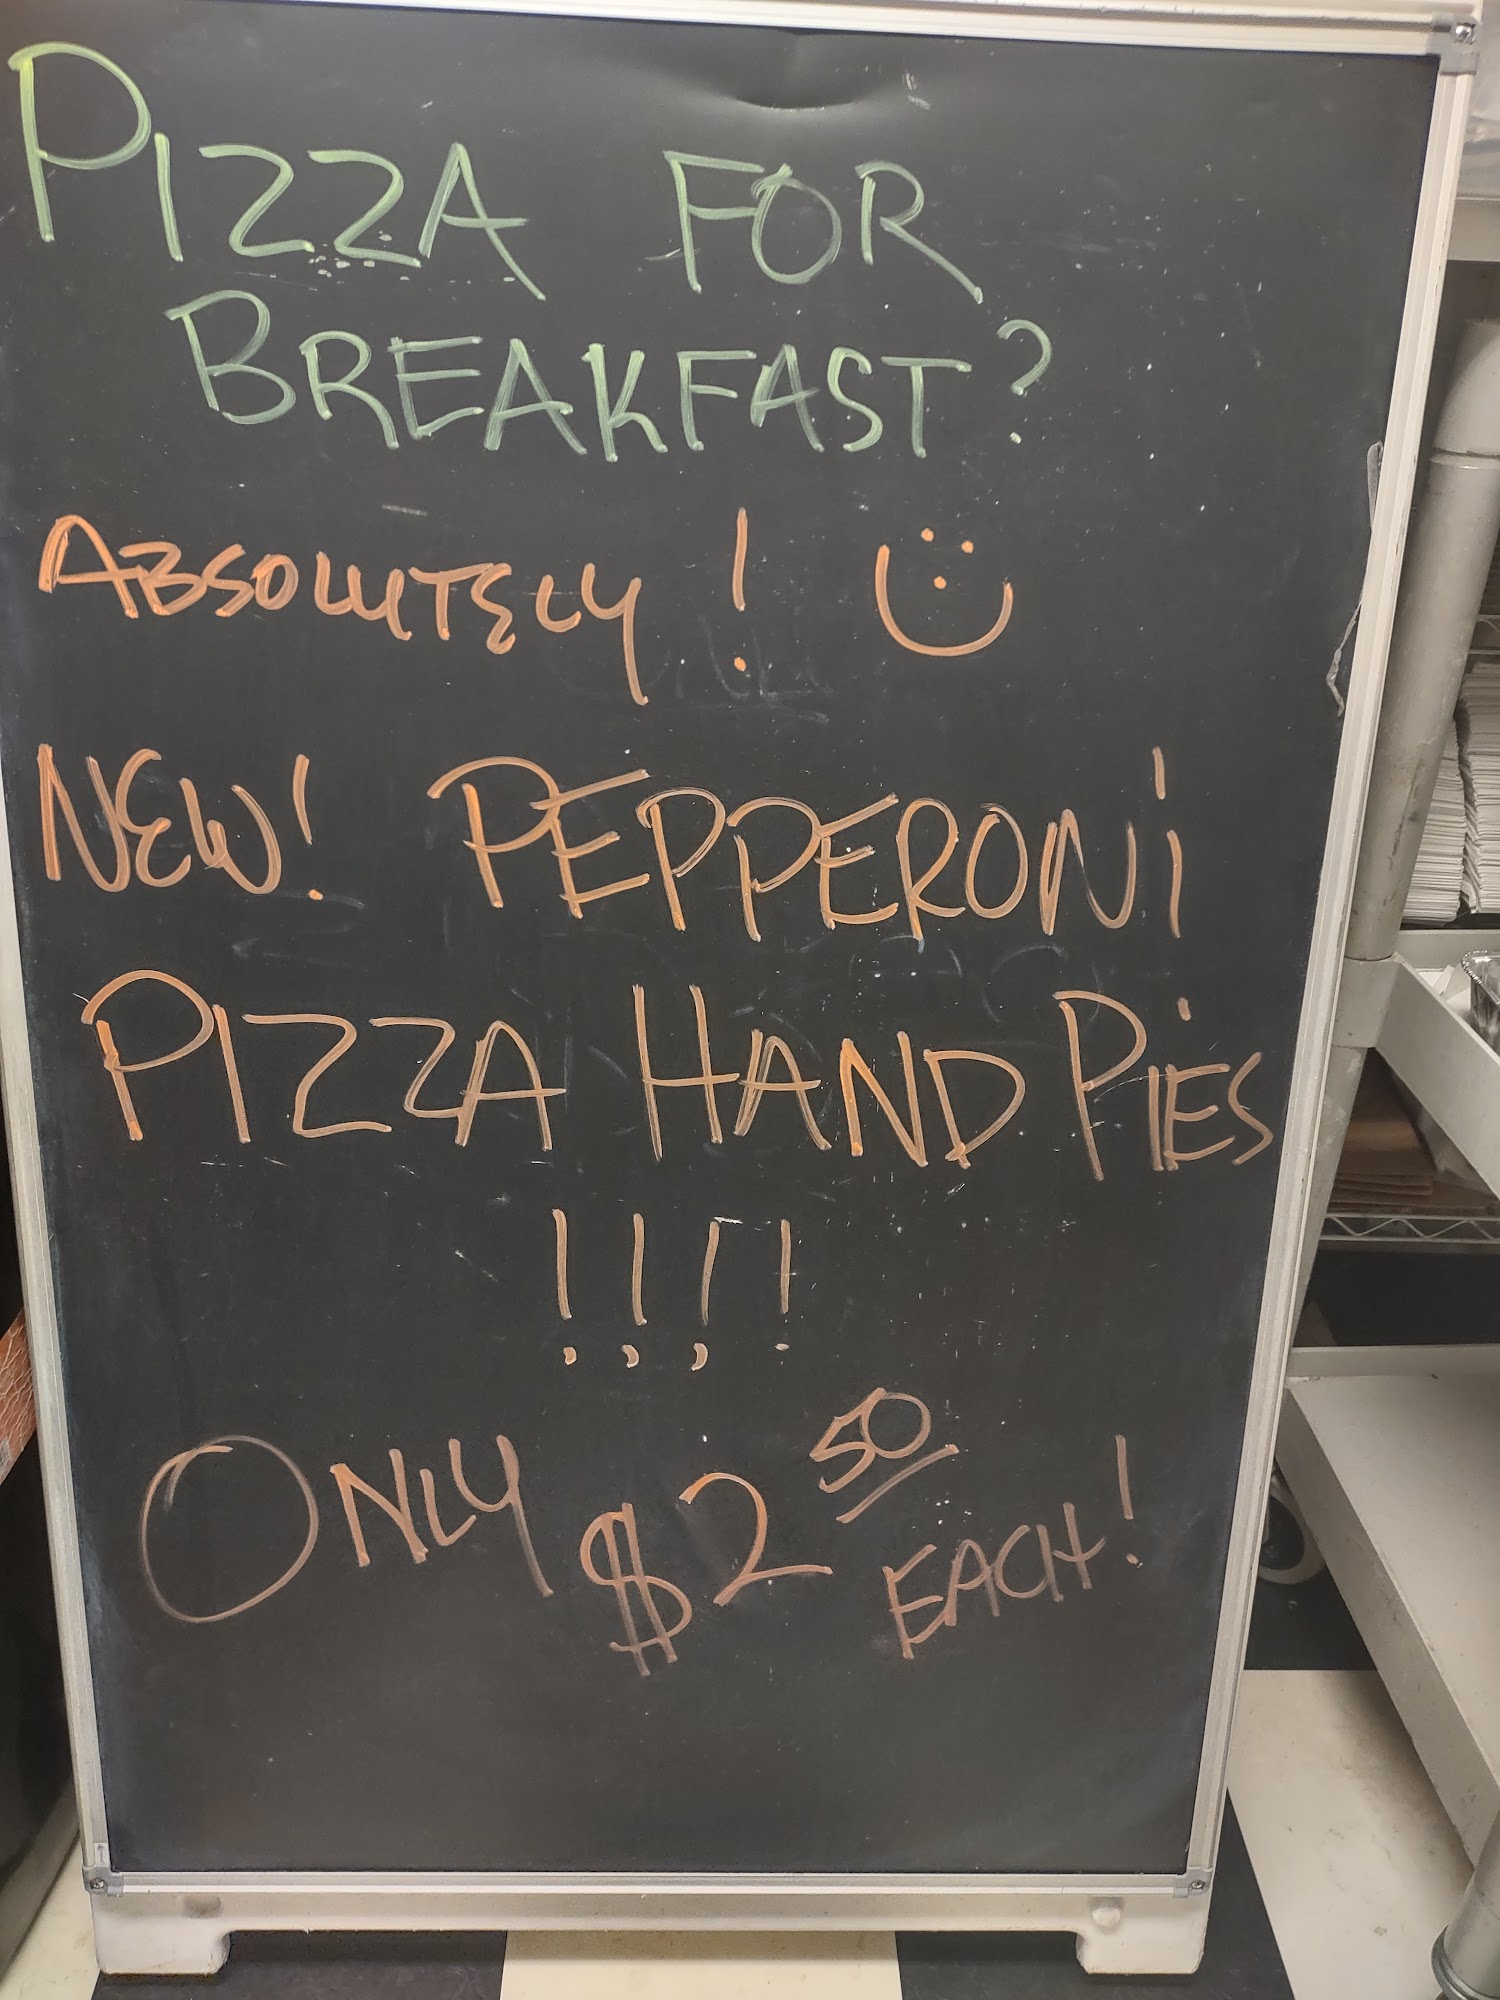 PIZZA FOR
BREAKFAST?
ABSOLUTELY!
NEW! PEPPERONI
PIZZA HAND PIES
!!!!
ONLY $2 50 EACH!